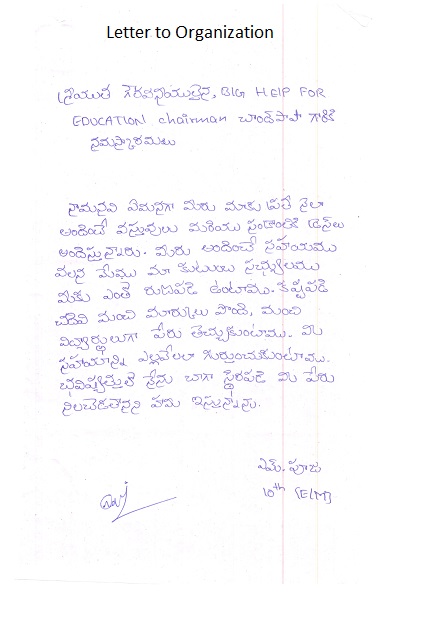 Letter to Organization
శ్రీయుత గౌరవనీయులైన, BIG HELP FOR
EDUCATION chairman చాంద్‌పాషా గారికి
నమస్కారములు
నామనవి ఏమనగా మీరు మాకు ప్రతి నెలా
అందించే వస్తువులు మరియు పండుగకి డ్రెస్‌లు
అందిస్తున్నారు. మీరు అందించే సహాయము
వలన మేము మా కుటుంబ సభ్యులము
మీకు ఎంతో రుణపడి ఉంటాము. కష్టపడి
చదివి మంచి మార్కులు పొంది, మంచి
విద్యార్థులుగా పేరు తెచ్చుకుంటాము. మీ
సహాయాన్ని ఎల్లవేలలా గుర్తుంచుకుంటాము.
భవిష్యత్తులో నేను బాగా స్థిరపడి మీ పేరు
నిలబెడతానని హామి ఇస్తున్నాను.
ఎమ్. పూజ
10th (E/M)